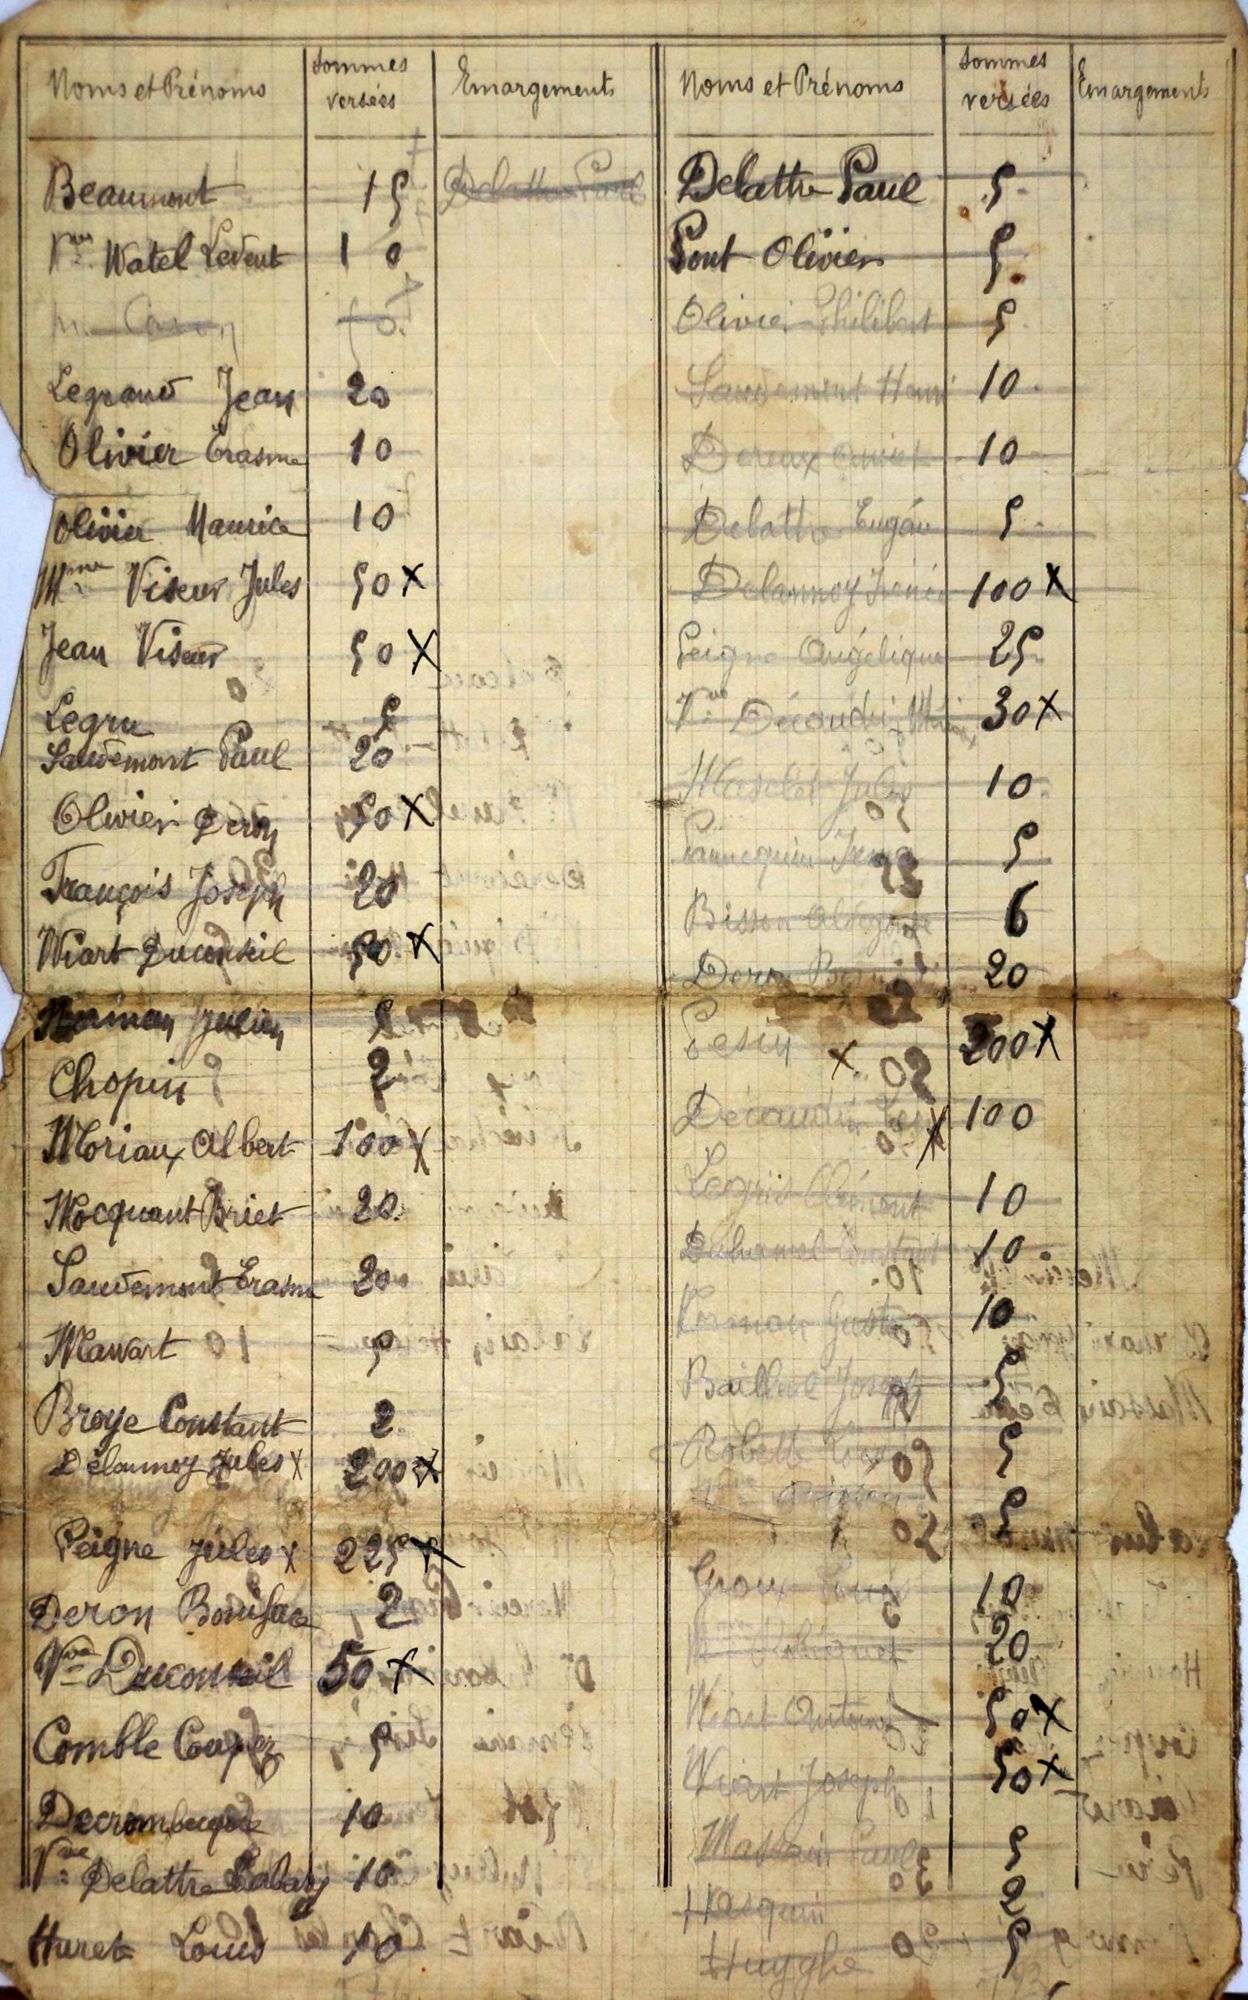 Noms et Prénoms
Sommes versées
Emargements
Beaumont 15 Delattre Paul
Vve Watel Levent 10
Caron
Legrand Jean 20
Olivier Erasme 10
Olivier Maurice 10
Mme Viseur Jules 50 X
Jean Viseur 50 X
Legru 5
Saudemont Paul 20
Olivier Deron 50 X
François Joseph 20
Wiart Duconseil 50 X
Julien
Chopin 2
Moriaux Albert 100 X
Mocquant Briet 20
Saudemont Erasme 20
Mawart 5
Broye Constant 2
Delannoy Jules X 200 X
Peigne Jules X 225 X
Deron Boniface 2
Vve Duconseil 50 X
Comble Coupez 5
Decrombecque 10
Vve Delattre Cabary 10
Huret Louis 10
Noms et Prénoms
Sommes versées
Emargements
Delattre Paul 5
Pont Olivier 5
Olivier Philibert 5
Saudemont Henri 10
Dereux 10
Delattre Eugén 5
Delannoy Irénée 100 X
Peigne Angélique 25
Vve Décaudin 30 X
Maselet Jules 10
Pannequin 5
Bisson 6
Deron 20
Pesin X 200 X
Décaudin X 100
Legris Clément 10
Duhamel Constant 10
Norman Gust 10
Bailleul Joseph 5
Robette 5
5
Groux 10
20
Wiart Antoine 50 X
Wiart Joseph 50 X
Massain Paul 5
Hasquin 2
Huyghe 5